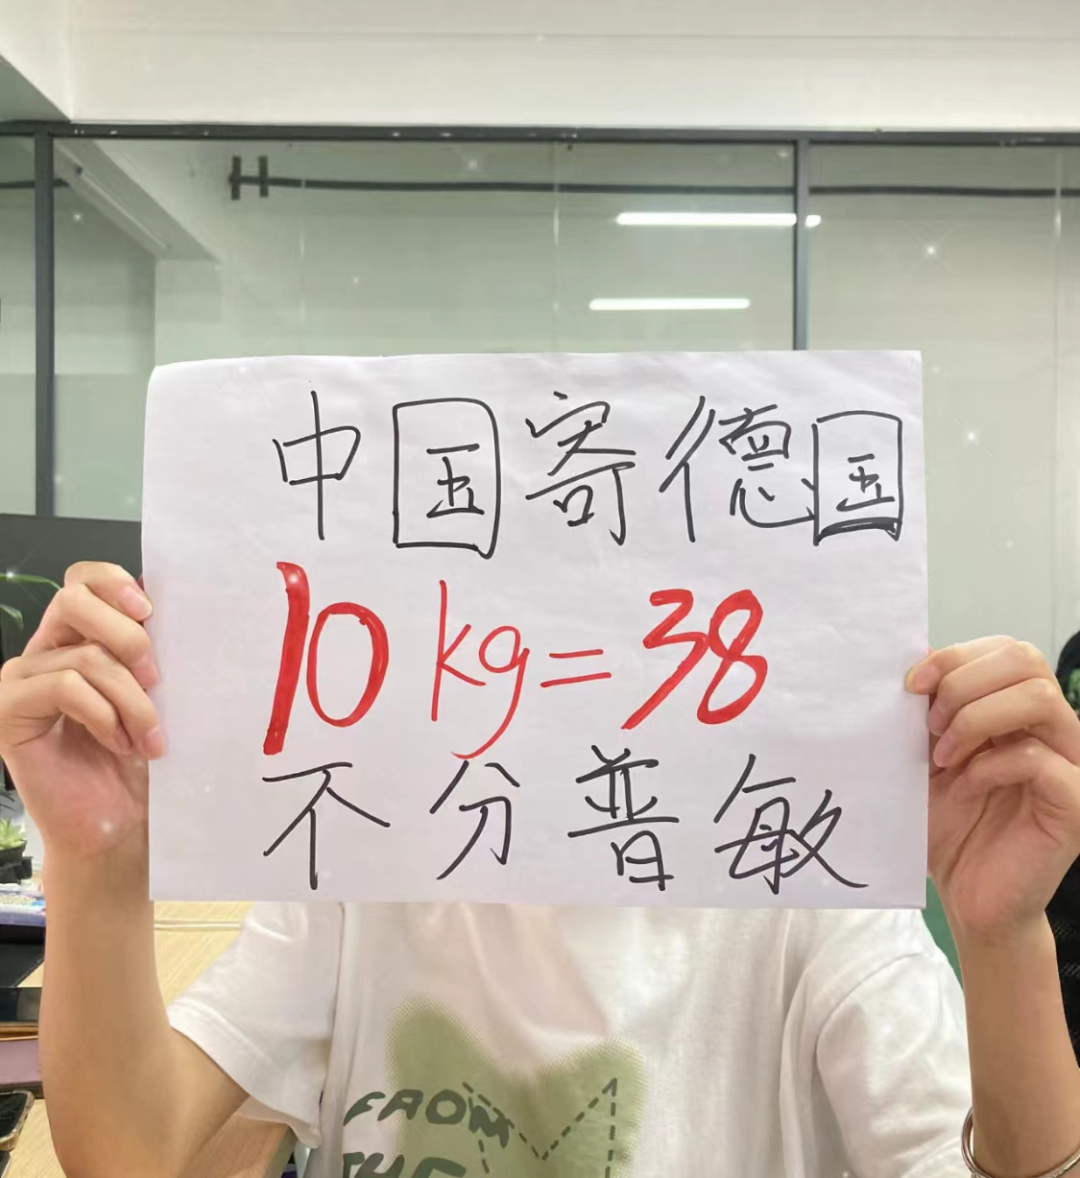 中国寄德国
10kg=38
不分普敏
FROM
THE